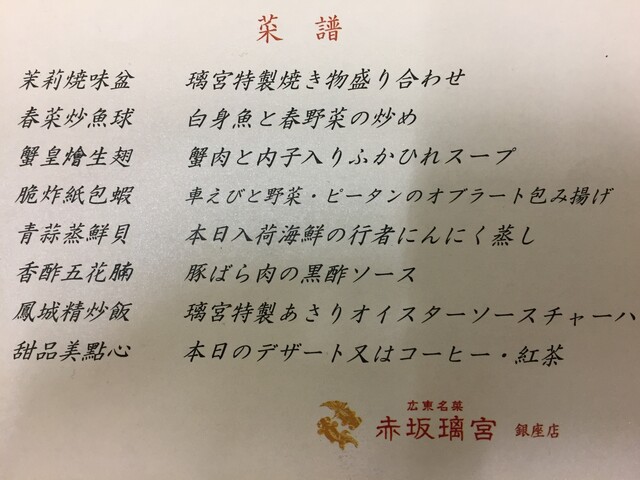 菜譜
茉莉焼味盆 璃宮特製焼き物盛り合わせ
春菜炒魚球 白身魚と春野菜の炒め
蟹皇燴生翅 蟹肉と内子入りふかひれスープ
脆炸紙包蝦 車えびと野菜・ピータンのオブラート包み揚げ
青蒜蒸鮮貝 本日入荷海鮮の行者にんにく蒸し
香酢五花腩 豚ばら肉の黒酢ソース
鳳城精炒飯 璃宮特製あさりオイスターソースチャーハ
甜品美點心 本日のデザート又はコーヒー・紅茶
広東名菜
赤坂璃宮 銀座店